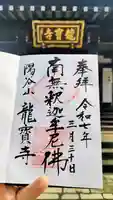 龍寳寺
奉拝
令和七年
三月三十日
南無釈迦牟尼佛
陽谷山
龍寳寺